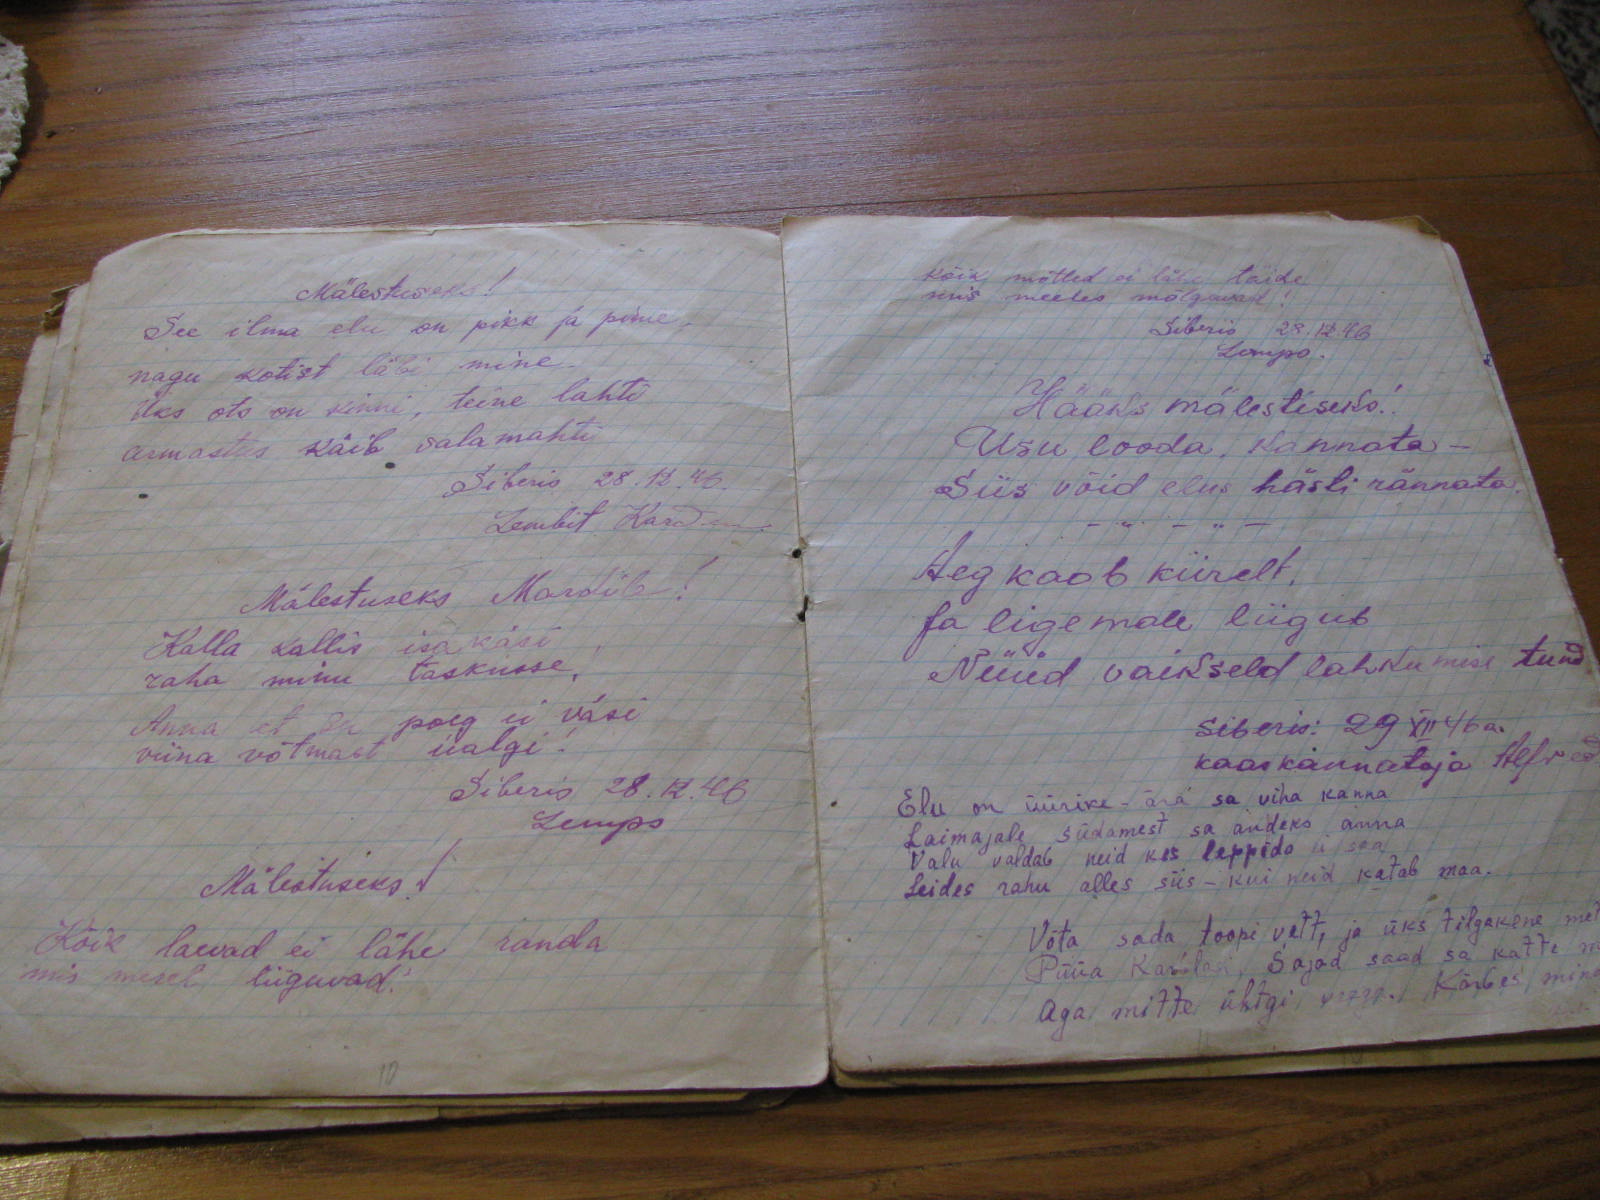 Mälestuseks!
See ilma elu on pikk ja pime
nagu kotist läbi mine
üks ots on kinni, teine lahti
armastus käib salamahti
Siberis 28.12.46.
Lembit
Mälestuseks Mardile!
Kalla kallis isa käsi
raha minu taskusse,
Anna et su poeg ei väsi
viina võtmast iialgi!
Siberis 28.12.46
Lemps
Mälestuseks!
Kõik laevad ei lähe randa
mis merel liiguvad!
10
kõik mõtted ei lähe täide
mis meeles mõlguvad!
Siberis 28.12.46
Lemps.
Hääks mälestiseks!
Usu looda, kannata -
Siis võid elus hästi rännata.
- " - " -
Aeg kaob kiirelt,
Ja ligemale liigub
Nüüd vaikseld lahkumise tund
Siberis: 29 XII 46 a.
kaaskannataja Alfred
Elu on üürike - ära sa viha kanna
Laimajale südamest sa andeks anna
Valu valdab neid kes leppida ei saa
Leides rahu alles siis - kui neid katab maa.
Võta sada toopi vett, ja üks tilgakene met
Püüa Sajad saad sa katte
Aga mitte ühtgi Kärbes